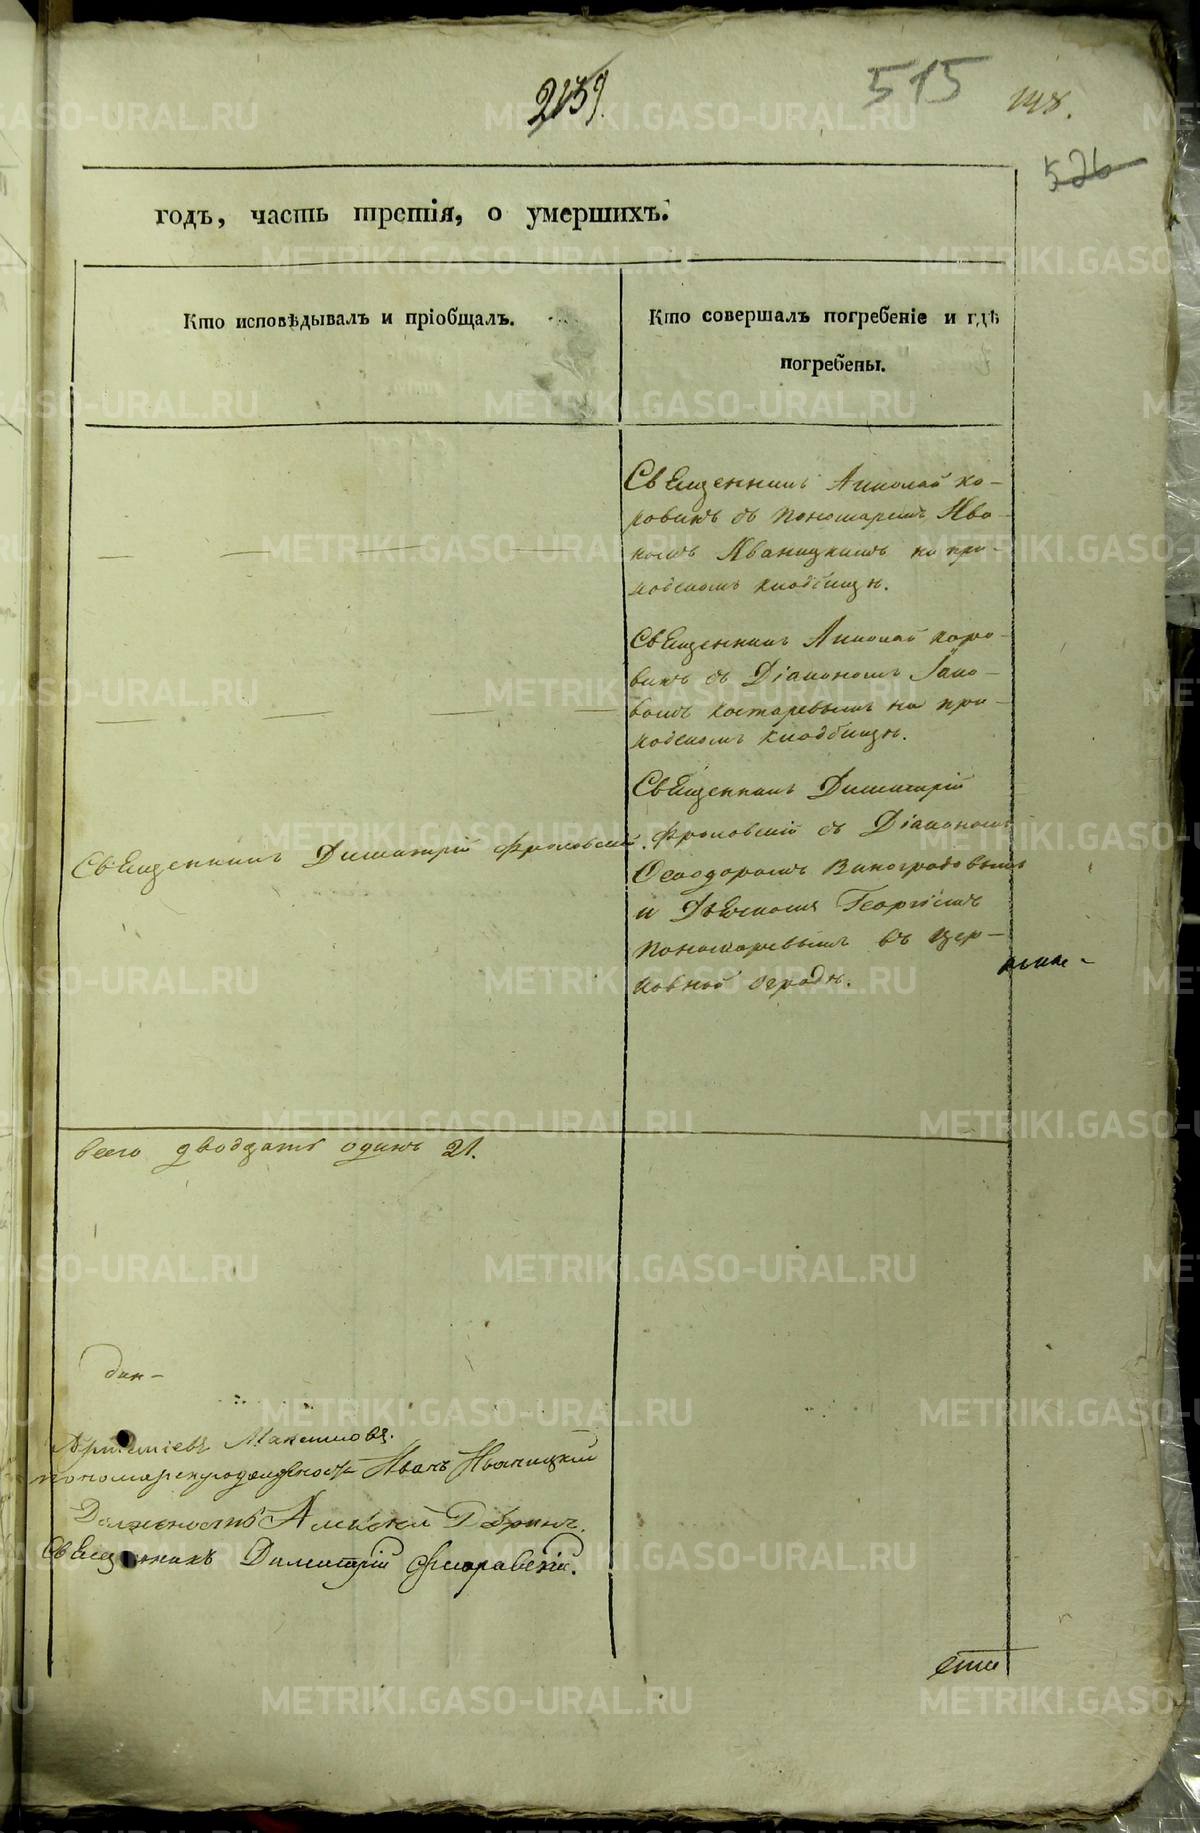 2159.
515
148.
526
годъ, часть третія, о умершихъ.
Кто исповѣдывалъ и пріобщалъ.
Кто совершалъ погребеніе и гдѣ
погребены.
Священникъ Николай Ко-
ровинъ съ Пономаремъ Ива-
номъ Иваницкимъ на при-
ходскомъ кладбищѣ.
Священникъ Николай Коро-
винъ съ Діакономъ Іако-
вомъ Костаревымъ на при-
ходскомъ кладбищѣ.
Священникъ Димитрій Фроловскій.
Священникъ Димитрій
Фроловскій съ Діакономъ
Ѳеодоромъ Виноградовымъ
и Дьячкомъ Георгіемъ
Пономаревымъ въ цер-
ковной оградѣ.
всего двадцать одинъ 21.
дия-
Артемiевъ
пономарскую должность Иванъ Иваницкій
Должность Алексѣй
Священникъ Димитрій Флоравскій.
METRIKI.GASO-URAL.RU